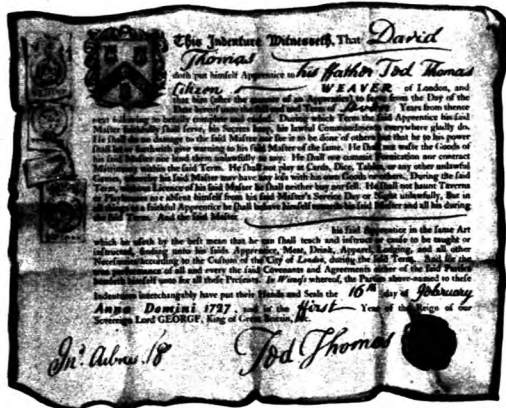 This Indenture Witnesseth, That David
Thomas
doth put himself Apprentice to his ffather Tod Thomas
Citizen WEAVER of London, and
that him (after the manner of an Apprentice) to serve from the Day of the
Date hereof, unto the full Term of Years from thence
next following to be fully complete and ended. During which Term the said Apprentice his said
Master faithfully shall serve, his Secrets keep, his lawful Commandments everywhere gladly do.
He shall do no damage to the said Master nor see it to be done of others but that he to his power
shall let or forthwith give warning to his said Master of the same. He shall not waste the Goods of
his said Master nor lend them unlawfully to any. He shall not commit Fornication nor contract
Matrimony within the said Term. He shall not play at Cards, Dice, Tables, or any other unlawful
Games, whereby his said Master may have any loss with his own Goods or others. During the said
Term, without Licence of his said Master he shall neither buy nor sell. He shall not haunt Taverns
or Playhouses nor absent himself from his said Master's Service Day or Night unlawfully. But in
all things as a faithful Apprentice he shall behave himself towards his said Master and all his during
the said Term. And the said Master
his said Apprentice in the same Art
which he useth by the best mean that he can shall teach and instruct or cause to be taught or
instructed, finding unto his said Apprentice, Meat, Drink, Apparel, Lodging, and all other
according to the Custom of the City of London, during the said Term. And for the
true performance of all and every the said Covenants and Agreements either of the said Parties
bindeth himself unto the other by these Presents. In Witness whereof, the Parties above-named to these
Indentures interchangeably have put their Hands and Seals the 16th day of ffebruary
Anno Domini 1727, and in the ffirst Year of the Reign of our
Sovereign Lord GEORGE, King of Great Britain, &c.
Tod Thomas